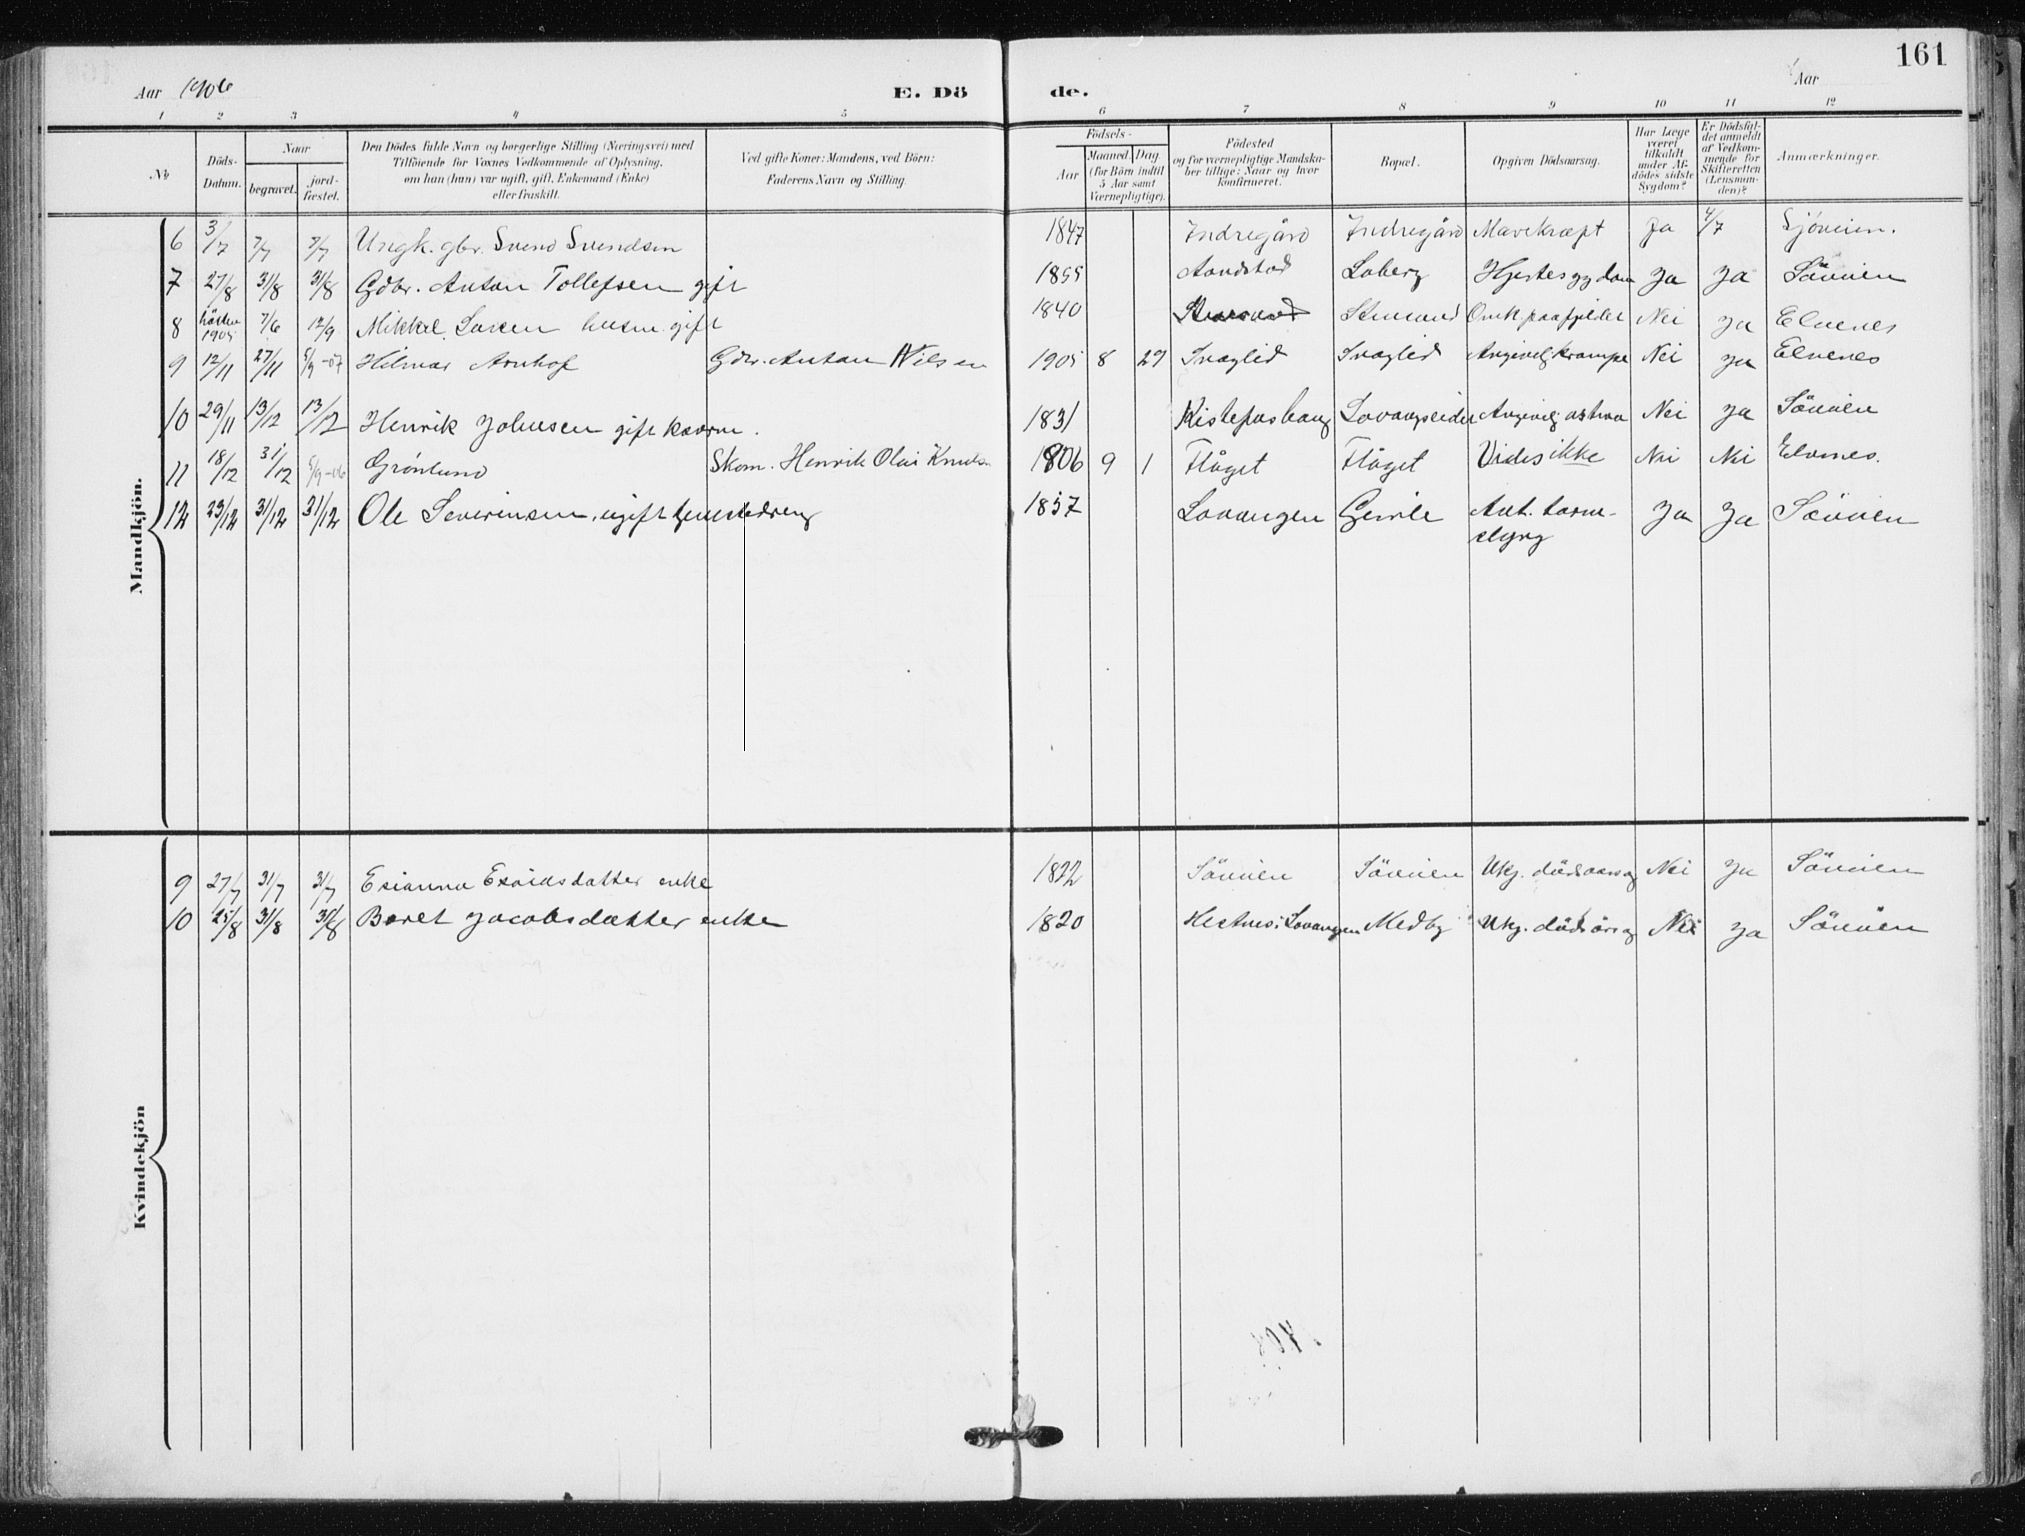 161
Aar 1906
E. Dö
de.
Aar
1 2 3 4 5 6 7 8 9 10 11 12
№
Döds-
Datum.
Naar
begravet.
jord-
fæstet.
Den Dödes fulde Navn og borgerlige Stilling (Næringsvei) med
Tilföiende for Voxnes Vedkommende af Oplysning,
om han (hun) var ugift, gift, Enkemand (Enke)
eller fraskilt.
Ved gifte Koner: Mandens, ved Börn:
Faderens Navn og Stilling.
Födsels-
Aar
Maaned. Dag.
(for Börn indtil
5 Aar samt
Værnepligtige).
Födested
og for værnepligtige Mandska-
ber tillige: Naar og hvor
konfirmeret.
Bopæl.
Opgiven Dödsaarsag.
Har Læge
været
tilkaldt
under Af-
dödes sidste
Sygdom?
Er Dödsfal-
det anmeldt
af Vedkom-
mende for
Skifteretten
(Lensman-
den)?
Anmærkninger.
Mandkjön.
6 3/7 7/7 7/7 Ungk. gbr. Svend Svendsen 1847 Indregård Indregård Mavekræft Ja 4/7 Sjøveien.
7 27/8 31/8 31/8 Gdbr. Anton Tollefsen gift 1855 Aandstad Laberg Hjertesygdom Ja Ja Söveien
8 hösten 1905 7/6 12/9 Mikkel Larsen husm. gift 1840 Omk. paa fjeldet Nei Ja Elvenes
9 12/11 27/11 5/9-07 Hilmar Arnhof Gdbr. Anton Nilsen 1905 8 27 Snæglid Snæglid Angivelig krampe Nei Ja Elvenes
10 29/11 13/12 13/12 Henrik Johnsen gift kaarm. 1831 Angivelig astma Nei Ja Söveien
11 18/12 31/12 5/9-06 Grönlund Skom. Henrik Olai Knuds. 1806 9 1 Flåget Flåget Vides ikke Nei Nei Elvenes.
12 23/12 31/12 31/12 Ole Severinsen, ugift tjenestedreng 1857 Lavangen Ant. tarm-
slyng Ja Ja Söveien
Kvindekjön
9 27/7 31/7 31/7 Esianna Esaiasdatter enke 1822 Söveien Söveien Ukj. dödsaarsag Nei Ja Söveien
10 25/8 31/8 31/8 Beret Jacobsdatter enke 1820 Hestnes i Lavangen Medby Ukj. dödsårsag Nei Ja Söveien